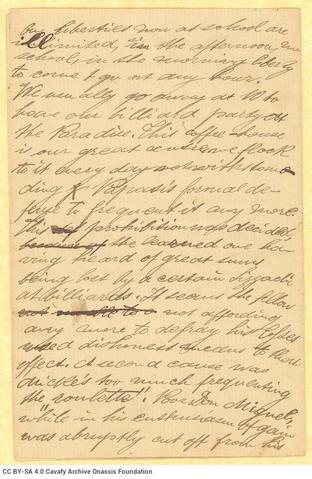 Our liberties now at school are
illimited, in the afternoon, no
school, in the morning liberty
to come & go out any hour.
We usually go away at 10 to
have our billiard party at
the Paradiso. This coffee-house
is our great centre we flock
to it every day notwithstan-
ding Papazis formal de-
fense to frequent it any more.
This prohibition was decided
because of the learned one ha-
ving heard of great sums
being lost by a certain
at billiards. It seems the fellow
not affording
any more to defray his losses
used dishonest means to that
effect. A second cause was
Mickès too much frequenting
the "roulette". Poor Don Miguel,
"while in his enthusiasm of gain"
was abruptly cut off from his
CC BY-SA 4.0 Cavafy Archive Onassis Foundation